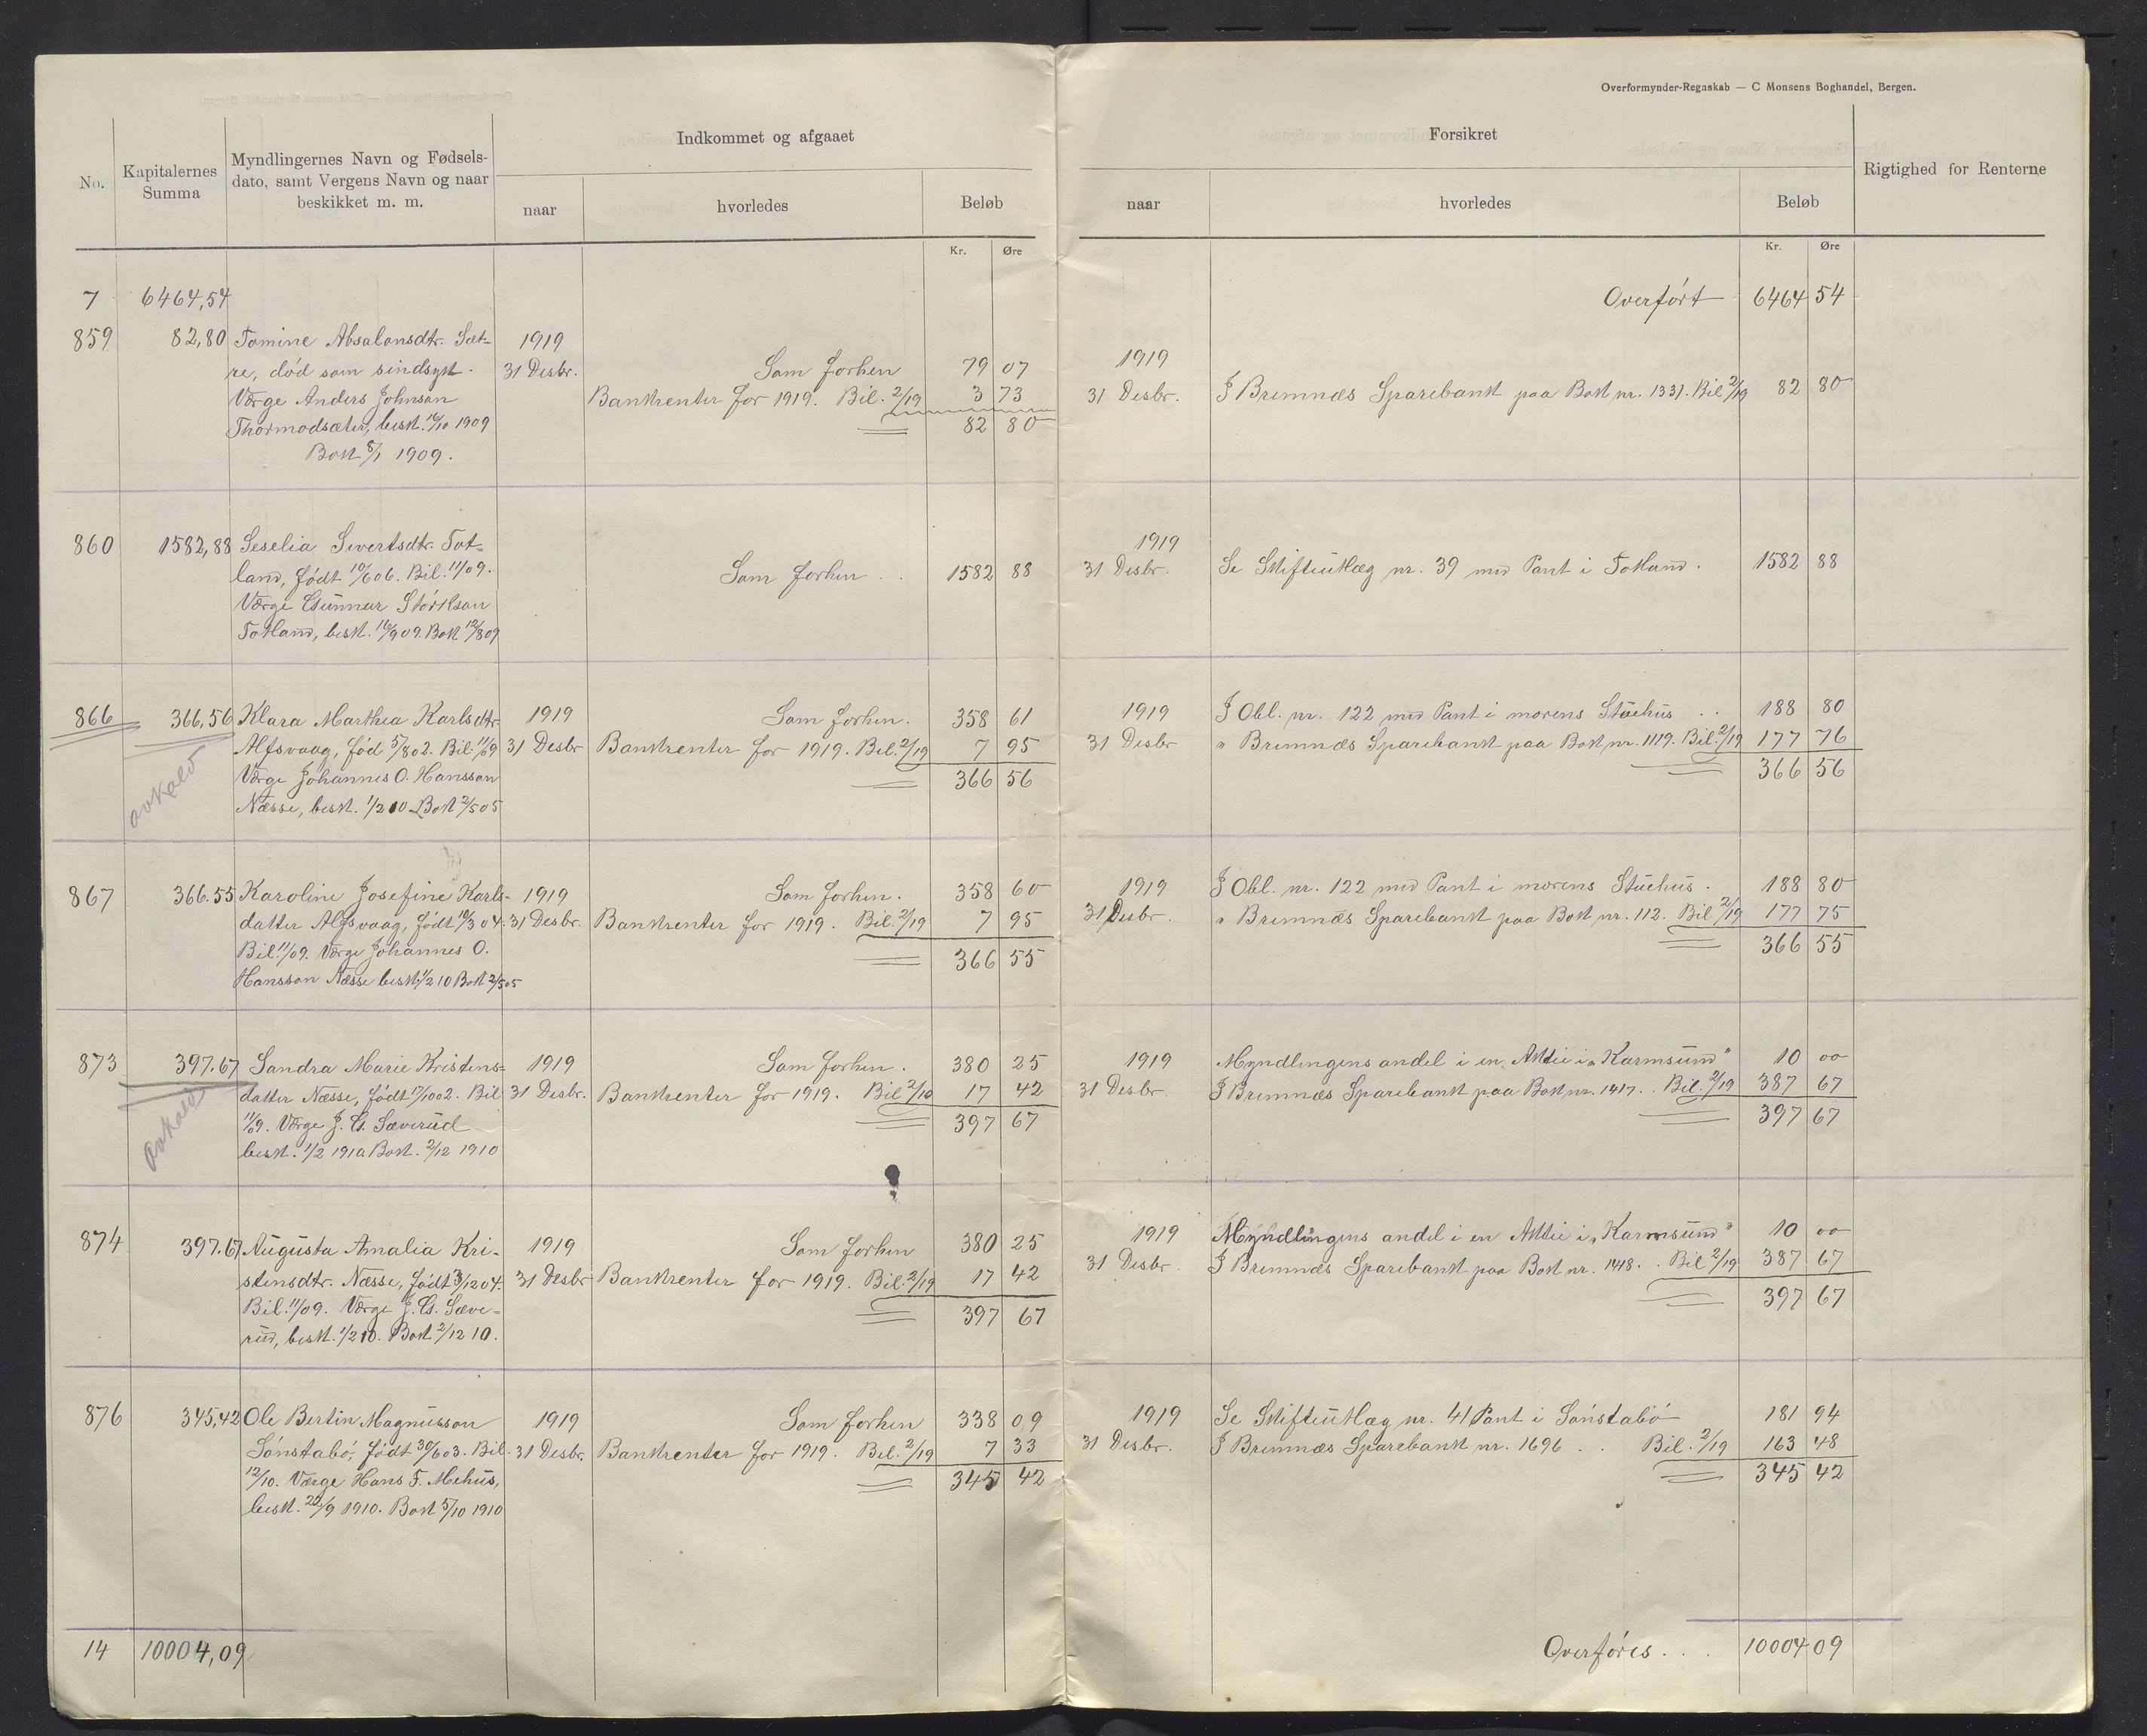 Overformynder-Regnskab — C Monsens Boghandel, Bergen.
No.
Kapitalernes
Summa
Myndlingernes Navn og Fødsels-
dato, samt Vergens Navn og naar
beskikket m. m.
Indkommet og afgaaet
naar
hvorledes
Beløb
Kr. Øre
Forsikret
naar
hvorledes
Beløb
Kr. Øre
Rigtighed for Renterne
7 6464,54
Overført 6464 54
859 82,80 Tomine Absalonsdtr. Sæt-
re, død som sindssyk.
Værge Anders Johnson
Thormodsæter, besk. 16/10 1909
Bok 8/1 1909.
1919
31 Desbr.
Som forhen 79 07
Bankrenter for 1919. Bil. 2/19 3 73
82 80
1919
31 Desbr. I Bremnæs Sparebank paa Bok nr. 1331. Bil 2/19 82 80
860 1582,88 Seselia Sivertsdtr. Tot-
land, født 10/6 06. Bil. 11/09.
Værge Gunnar Størkson
Totland, besk. 16/9 09. Bok 12/8 09
Som forhen . . 1582 88
1919
31 Desbr. Se Skifteutlæg nr. 39 med Pant i Totland. 1582 88
866 366,56 Klara Marthea Karlsdtr.
Alfsvaag, fød 5/8 02. Bil 11/09
Værge Johannes O. Hansson
Næsse, besk. 1/2 10 Bok 2/5 05
avkald
1919
31 Desbr
Som forhen. 358 61
Bankrenter for 1919. Bil. 2/19 7 95
366 56
1919 I Obl. nr. 122 med Pant i morens Stuehus . . 188 80
31 Desbr " Bremnæs Sparebank paa Bok nr. 1119. Bil. 2/19 177 76
366 56
867 366.55 Karoline Josefine Karls-
datter Alfsvaag, født 10/3 04.
Bil. 11/09. Værge Johannes O.
Hansson Næsse besk. 1/2 10 Bok 2/5 05
1919
31 Desbr.
Som forhen. 358 60
Bankrenter for 1919. Bil. 2/19 7 95
366 55
1919 I Obl. nr. 122 med Pant i morens Stuehus . 188 80
31 Desbr. " Bremnæs Sparebank paa Bok nr. 112. Bil 2/19 177 75
366 55
873 397.67 Sandra Marie Kristens-
datter Næsse, født 17/10 02. Bil
11/09. Værge J. G. Sæverud
besk. 1/2 1910 Bok. 2/12 1910
avkald
1919
31 Desbr.
Som forhen. 380 25
Bankrenter for 1919. Bil 2/10 17 42
397 67
1919 Myndlingens andel i en Aktie i "Karmsund" 10 00
31 Desbr. I Bremnæs Sparebank paa Bok nr. 1417. . Bil. 2/19 387 67
397 67
874 397.67 Augusta Amalia Kri-
stensdtr. Næsse, født 3/12 04.
Bil. 11/09. Værge J. G. Sæve-
rud, besk. 1/2 10. Bok 2/12 10.
1919
31 Desbr
Som forhen 380 25
Bankrenter for 1919. Bil. 2/19 17 42
397 67
1919 Myndlingens andel i en Aktie i "Karmsund" 10 00
31 Desbr. I Bremnæs Sparebank paa Bok nr. 1418. . Bil 2/19 387 67
397 67
876 345,42 Ole Bertin Magnusson
Sønstabø, født 30/6 03. Bil.
12/10. Værge Hans F. Mehus,
besk. 22/9 1910. Bok 5/10 1910
1919
31 Desbr.
Som forhen 338 09
Bankrenter for 1919. Bil. 2/19 7 33
345 42
1919 Se Skifteutlæg nr. 41 Pant i Sønstabø 181 94
31 Desbr. I Bremnæs Sparebank nr. 1696 . . Bil. 2/19 163 48
345 42
14 10004,09
Overføres . . . 10004 09